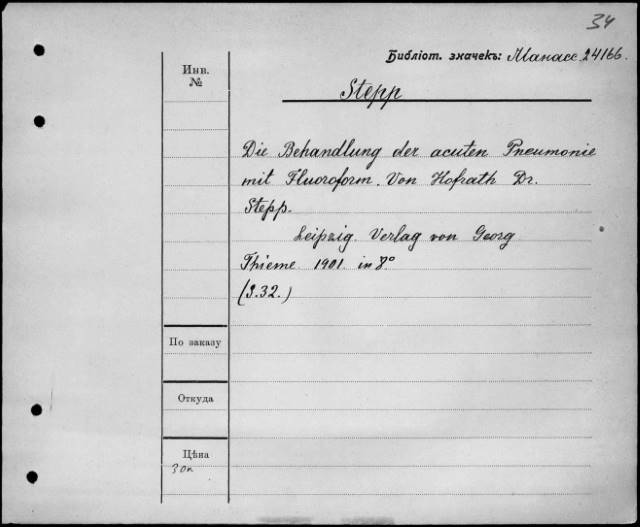 34
Библіот. значекъ: Манасе 24166.
Инв.
№
Stepp
Die Behandlung der acuten Pneumonie
mit Fluoroform. Von Hofrath Dr.
Stepp.
Leipzig. Verlag von Georg
Thieme. 1901. in 8º
(S. 32.)
По заказу
Откуда
Цѣна
30к